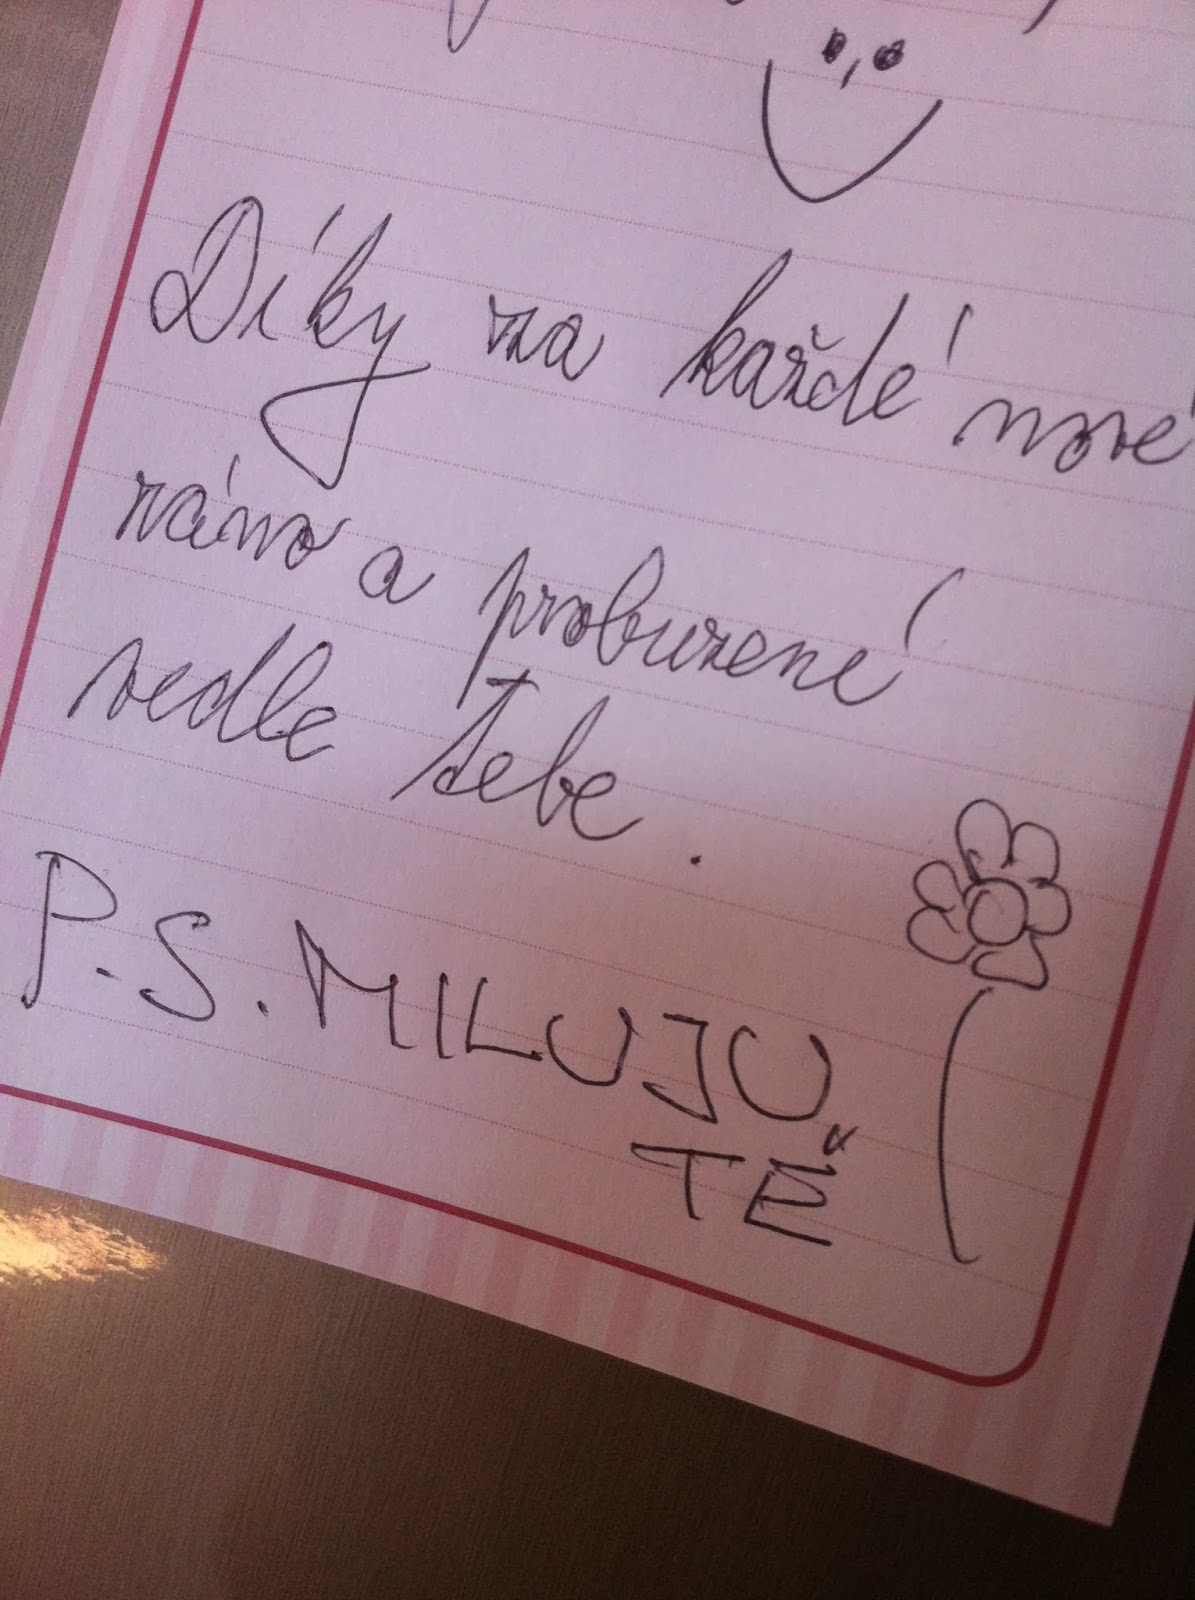 Díky za každé nové
ráno a probuzené
vedle tebe.
P.S. MILUJU
TĚ